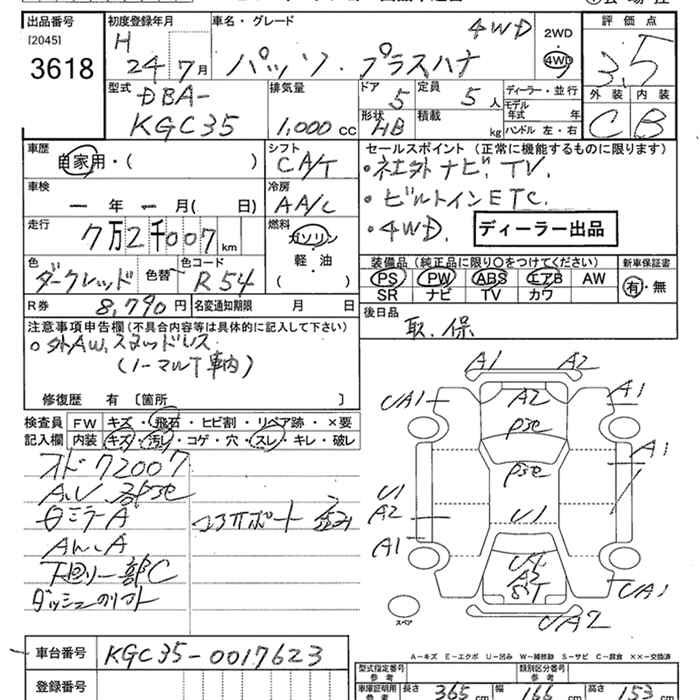 出品番号 初度登録年月 車名・グレード 4WD 2WD 評価点
[2045] H
3618 24年7月 パッソ・プラスハナ 4WD 3.5
型式 排気量 ドア 定員 ディーラー・並行 外装 内装
DBA- 5 5人 モデル年式 年
KGC35 1,000cc 形状 HB 積載 kg ハンドル 左・右 C B
車歴 シフト セールスポイント (正常に機能するものに限ります)
自家用・( ) CA/T ・社外ナビ、TV.
車検 冷房 ・ビルトインETC.
ー年ー月( 日) AA/C ・4WD. ディーラー出品
走行 燃料
7万2千007km ガソリン・軽・油( )
装備品 (純正品に限り○をつけてください) 新車保証書
PS PW ABS エアB AW 有・無
SR ナビ TV カワ
色 色替 色コード
ダークレッド R54
R券 8,790円 名変通知期限 月 日 後日品
取.保
注意事項申告欄(不具合内容等は具体的に記入して下さい)
○外AW.スタッドレス
(ノーマルT車内)
修復歴 有 〔箇所 〕
検査員記入欄 FW キズ・飛石・ヒビ割・リペア跡・×要
内装 キズ・汚レ・コゲ・穴・スレ・キレ・破レ
オド72007
下回り一部C
A1 A2
UA1 A2 A1
A1
U1 U1
A2
A1
UA1
UA2
スペア
A-キズ E-エクボ U-凹み W-補修跡 S-サビ C-腐食 ××-交換済
車台番号 KGC35-0017623
登録番号
型式指定番号 参考 類別区分番号 参考
車庫証明用 参考 長さ 365cm 幅 166cm 高さ 153cm